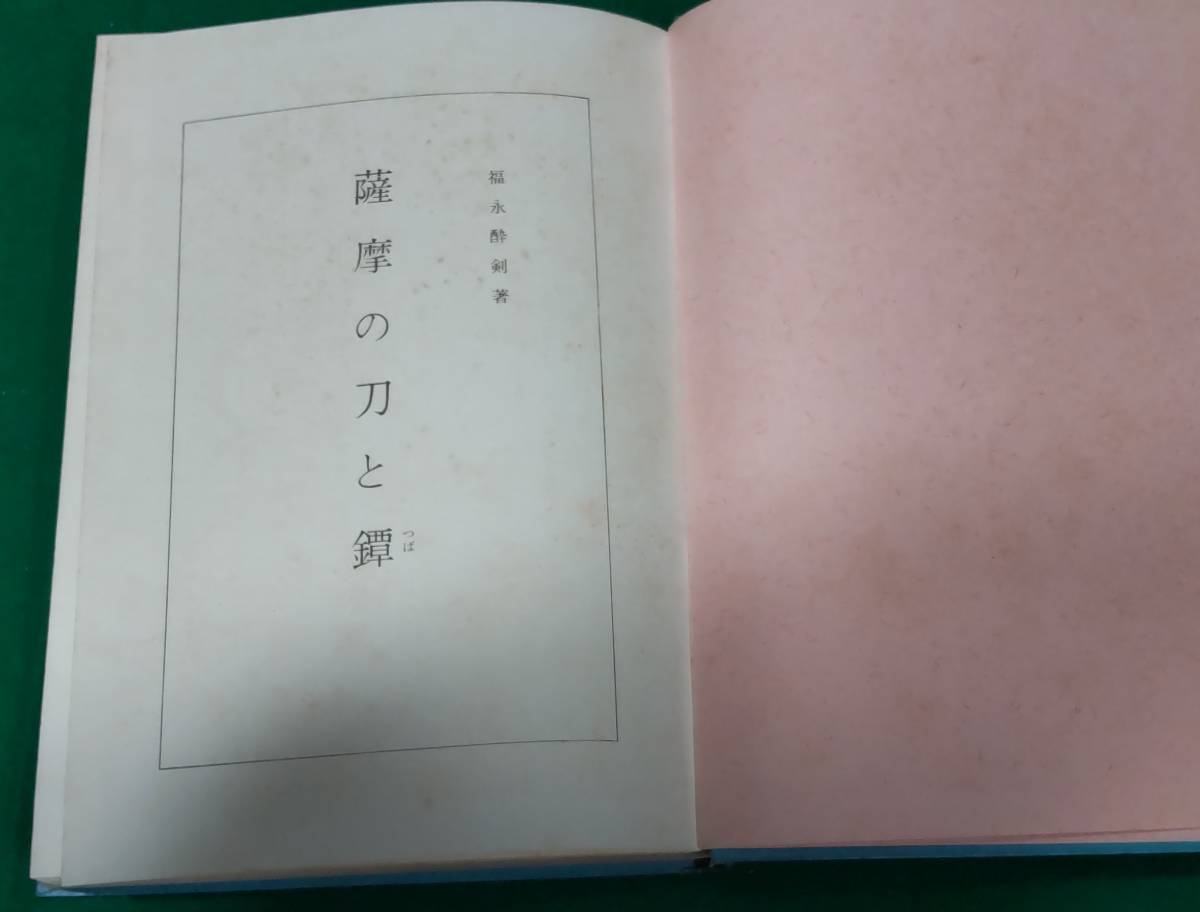 福永酔剣著
薩摩の刀と鐔
つば